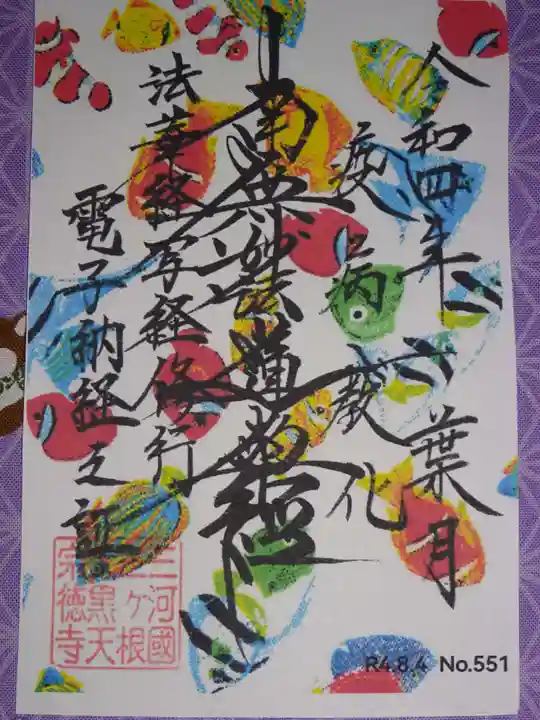 令和四年 葉月
疫病教化
南無妙法蓮華経
法華経写経修行
電子納経之証
三河國
三ヶ根
黒天
宗徳寺
R4.8.4 No.551